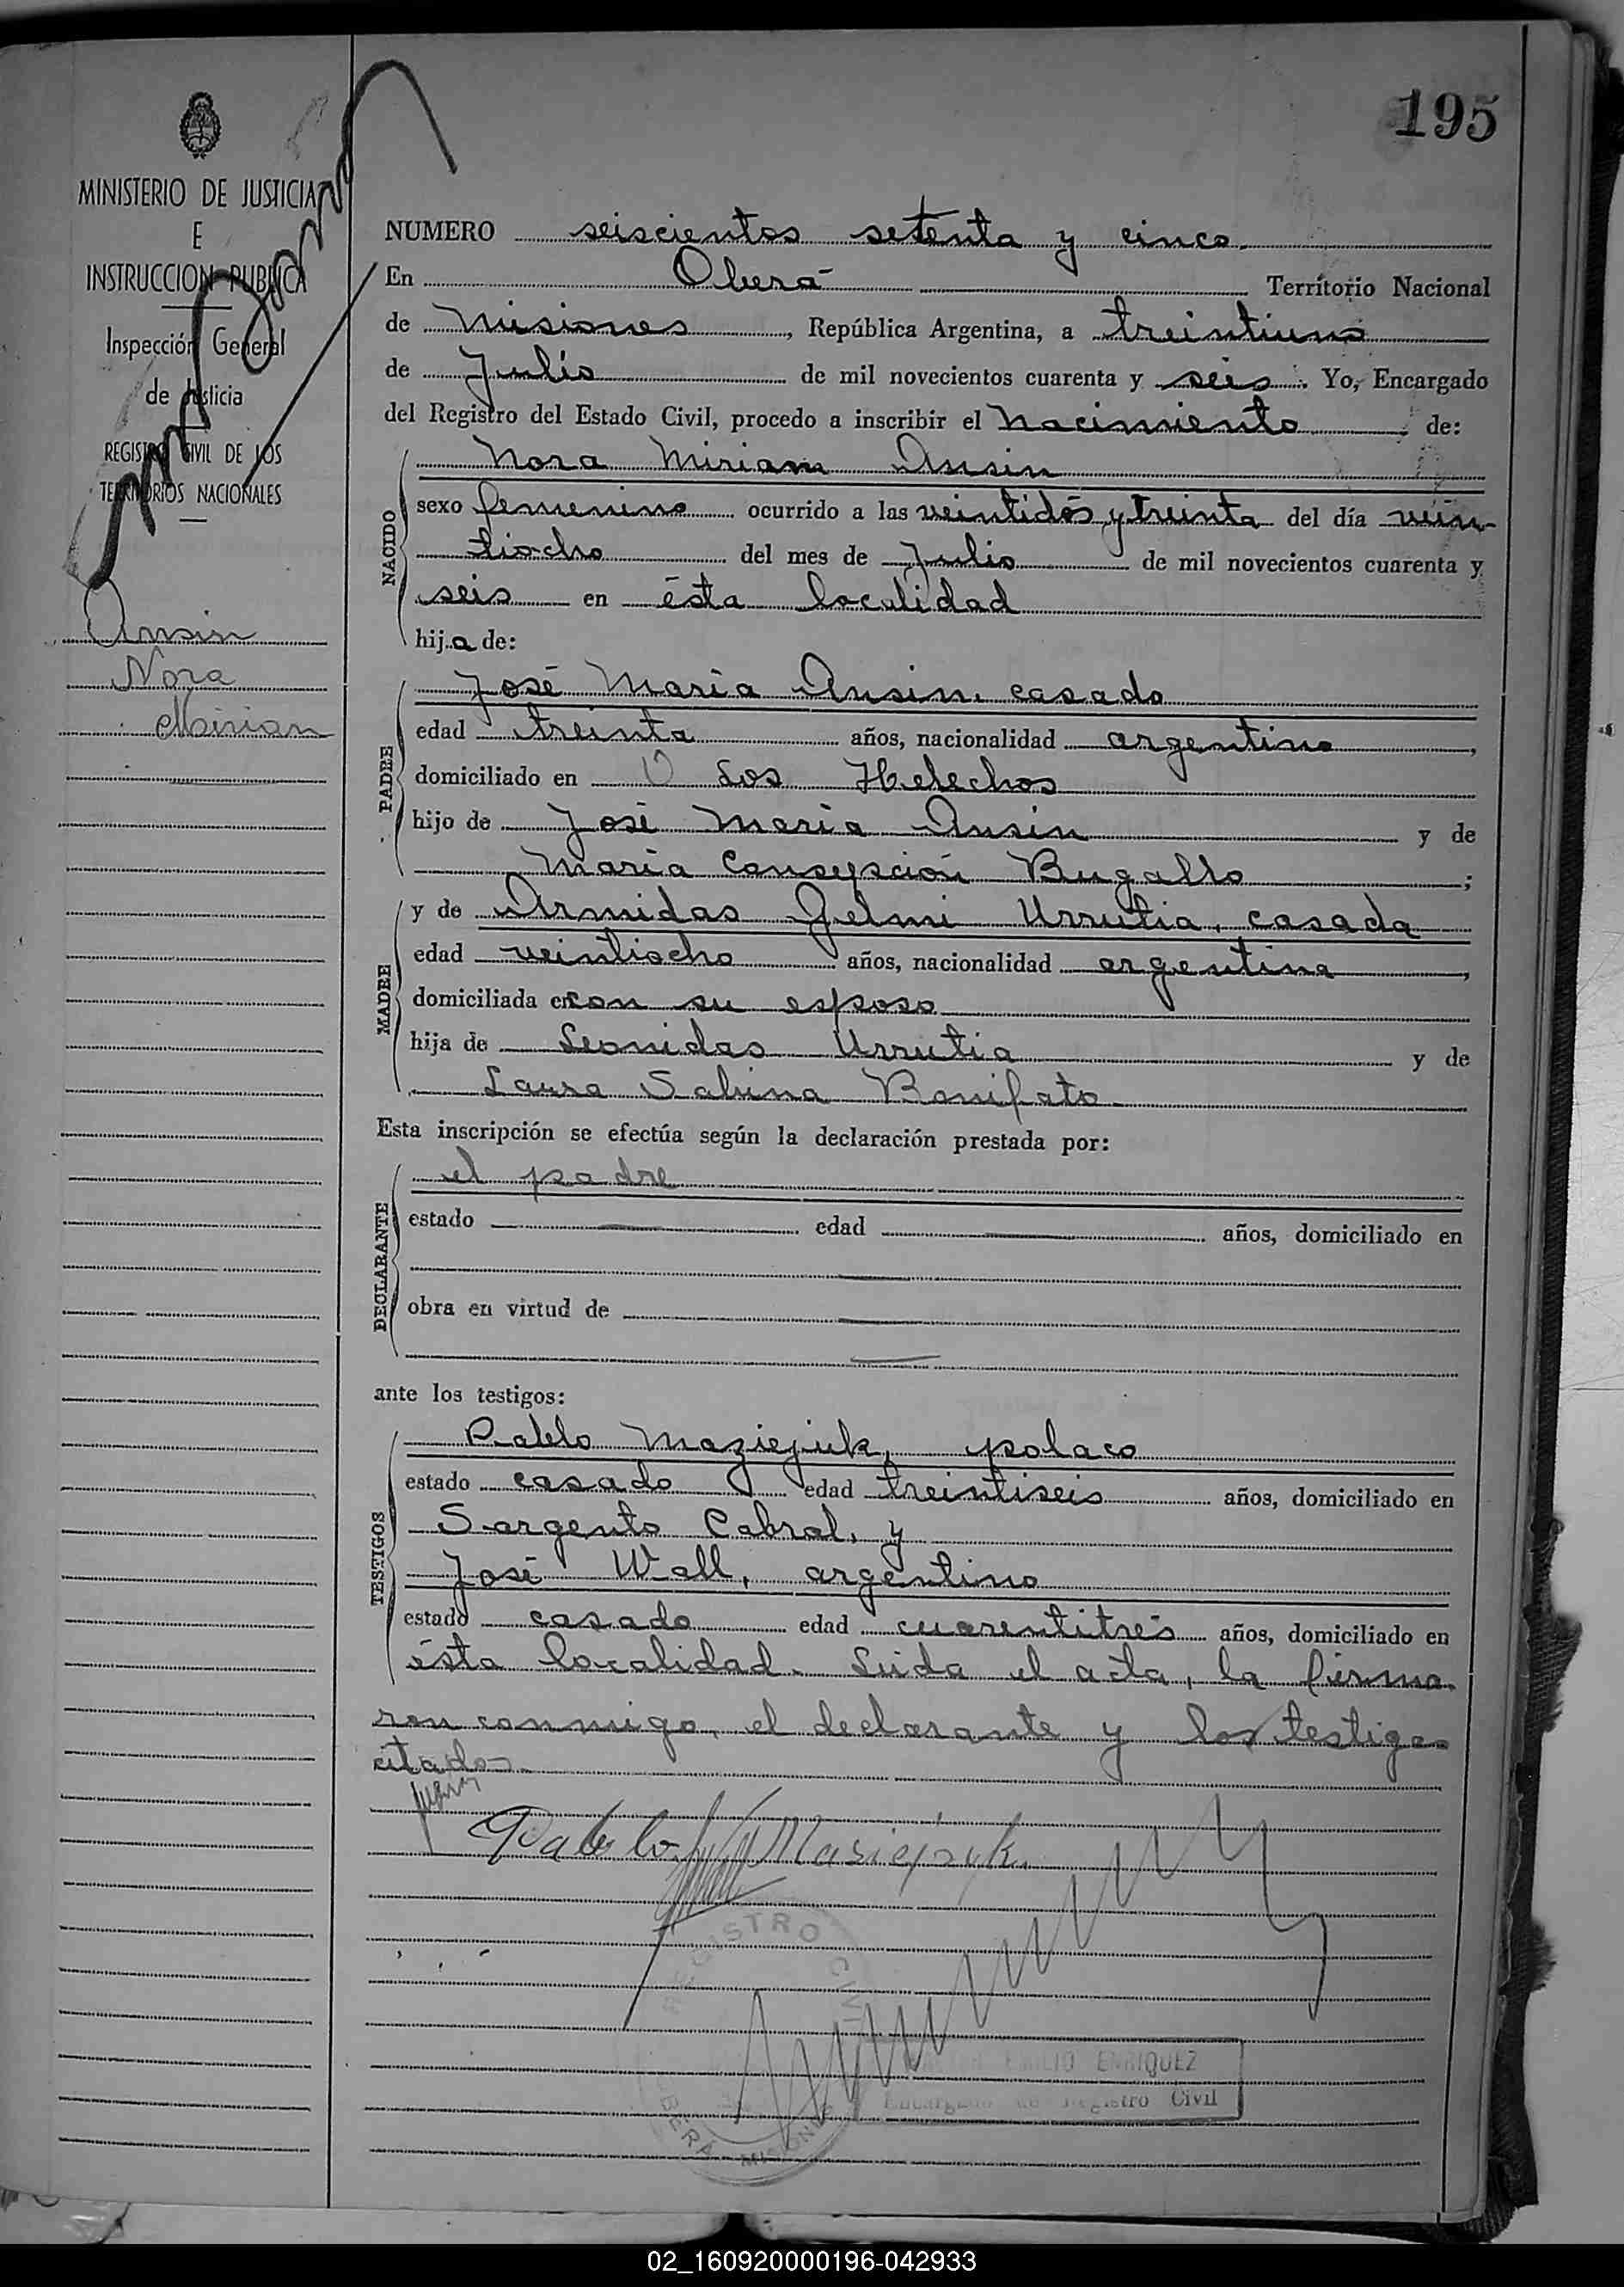 195
MINISTERIO DE JUSTICIA
E
INSTRUCCION PUBLICA
Inspección General
de Justicia
REGISTRO CIVIL DE LOS
TERRITORIOS NACIONALES
Ansin
Nora
Mirian
NUMERO seiscientos setenta y cinco.
En Oberá Territorio Nacional
de Misiones, República Argentina, a treintiuno
de Julio de mil novecientos cuarenta y seis. Yo, Encargado
del Registro del Estado Civil, procedo a inscribir el Nacimiento de:
NACIDO
Nora Miriam Ansin
sexo femenino ocurrido a las veintidós y treinta del día vein-
tiocho del mes de Julio de mil novecientos cuarenta y
seis en ésta localidad
hija de:
PADRE
José Maria Ansin, casado
edad treinta años, nacionalidad argentino,
domiciliado en Los Helechos
hijo de José Maria Ansin y de
Maria Consepción Bugallo;
MADRE
y de Armidas Jelmi Urrutia, casada
edad veintiocho años, nacionalidad argentina,
domiciliada en con su esposo
hija de Leonidas Urrutia y de
Laura Sabina Bonifato
Esta inscripción se efectúa según la declaración prestada por:
DECLARANTE
el padre
estado edad años, domiciliado en
obra en virtud de
ante los testigos:
TESTIGOS
Pablo Maziejuk, polaco
estado casado edad treintiseis años, domiciliado en
Sargento Cabral, y
José Wall, argentino
estado casado edad cuarentitrés años, domiciliado en
ésta localidad. Leida el acta, la firma-
ron conmigo, el declarante y los testigos
citados
Pablo Masiejuk
REGISTRO CIVIL
OBERA MISIONES
EMILIO ENRIQUEZ
Encargado de Registro Civil
02_160920000196-042933